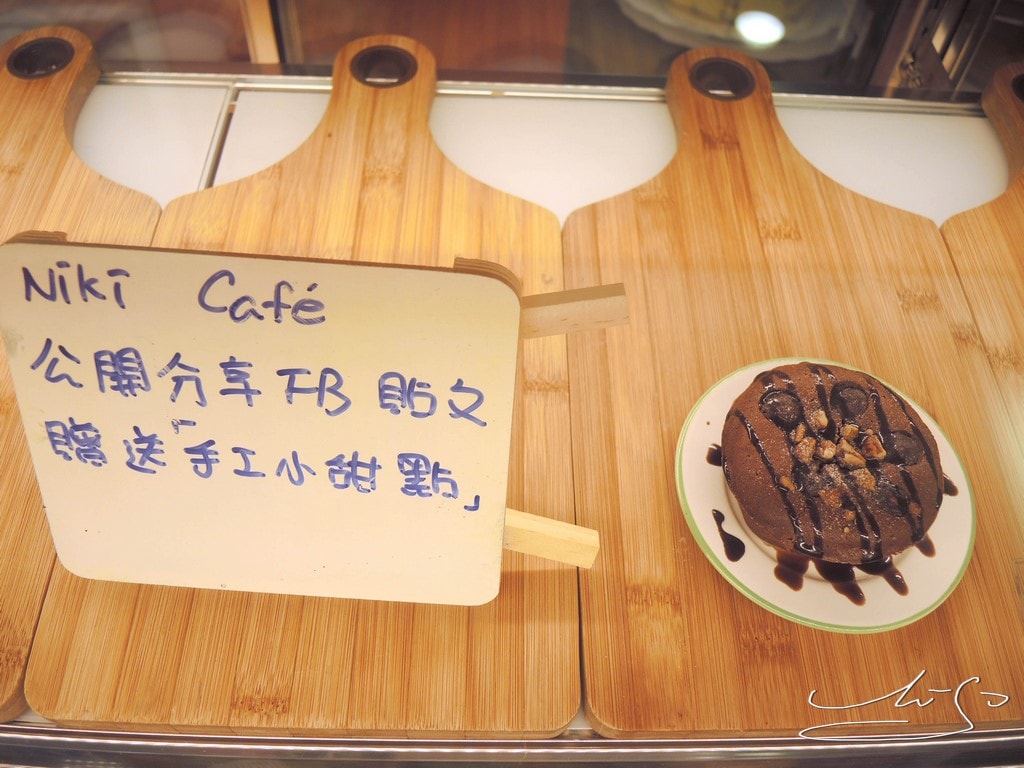 Niki Café
公開分享FB貼文
贈送「手工小甜點」